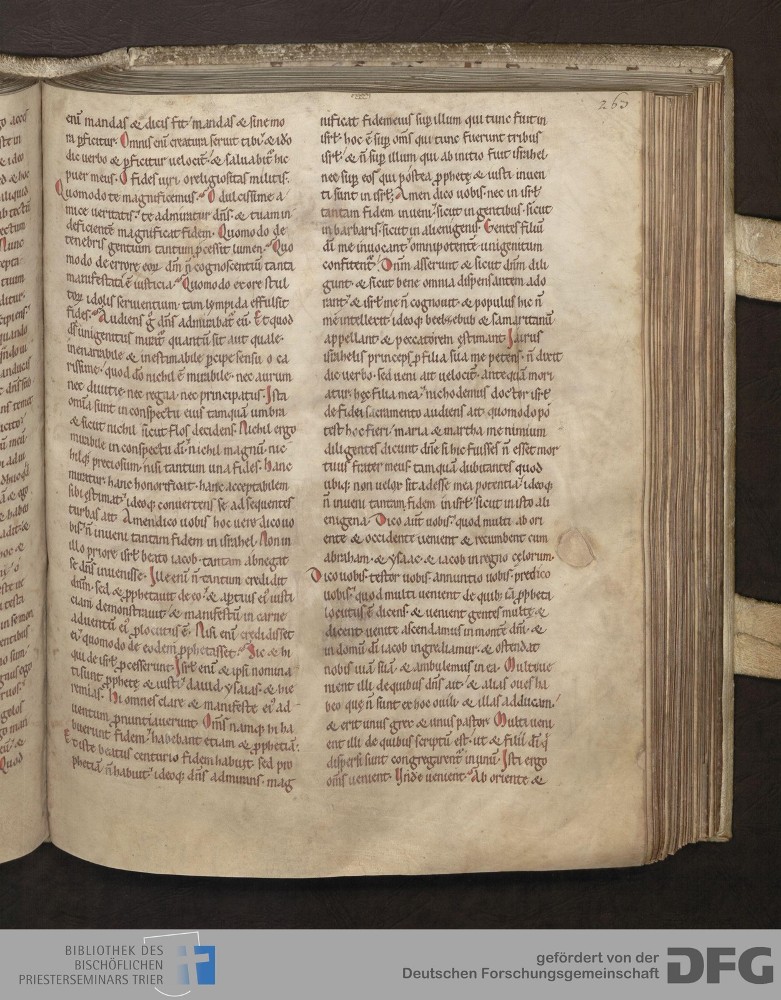 263
enī mandas & dicis fit mandas & sine mo
ra pficitur. Omnis enī creatura seruit tibi & ido
dic uerbo & pficitur uelocit & saluabit hic
puer meus. O fides uiri o religiositas militis.
Quomodo te magnificemus. O dulcissime a
mice ueritatis. te admiratur dns & tuam in
deficiente magnificat fidem. Quomodo de
tenebris gentium tantum pcessit lumen. Quo
modo de errore eor dm n cognoscentiū tanta
manifestata ē iusticia. Quomodo ex ore stul
tor idolis seruientium tam lympida effulsit
fides. Audiens g dns admirabat eū. Et quod
unigenitus murat quantū sit aut quale.
inenarrabile & inestimabile pcipe sensu o ca
rissime. quod do nichil ē mirabile. nec aurum
nec diuitie nec regna. nec principatus. Ista
omīa sunt in conspectu eius tamquā umbra
& sicut nichil. sicut flos decidens. Nichil ergo
mirabile in conspectu di. nichil magnū. nic
hilq preciosum. nisi tantum una fides. hanc
miratur. hanc honorificat. hanc acceptabilem
sibi estimat. ideoq conuertens se ad sequentes
turbas ait. Amen dico uobis hoc uere dico uo
bis. n inueni tantam fidem in israhel. Non in
illo priore isrl beato iacob. tantam abnegat
se dns inuenisse. Ille enī n tantum credidit
dnm. sed & pphetauit de eo. & aptius ei iusti
ciam demonstrauit & manifestū in carne
aduentū ei plocutus ē. Nisi enī credidisset
ei quomodo de eodem pphetasset. Sic & hi
qui de isrl pcesserunt. Isrl enī & ipsi nomina
ti sunt pphete & iusti dauid. ysaias. & hie
remias. hi omnes clare & manifeste ei ad
uentum pnuntiauerunt. Oms namq hi ha
buerunt fidem. habebant etiam & pphetiā.
Et iste beatus centurio fidem habuit. sed pro
phetiā n habuit. ideoq dns admirans. mag
nificat fidem eius sup illum qui tunc fuit in
isrl. hoc ē sup oms qui tunc fuerunt tribus
isrl. & n sup illum qui ab initio fuit israhel.
nec sup eos qui postea pphete & iusti inuen
ti sunt in isrl. Amen dico uobis. nec in isrl
tantam fidem inueni. sicut in gentibus. sicut
in barbaris. sicut in alienigenis. Gentes filiū
di me inuocant omnipotentē unigenitum
confitent. Dnm asserunt & sicut dnm dili
gunt. & sicut bene omnia dispensantem ado
rant. & isrl me n cognouit & populus hic n
me intellexit ideoq beelzebub & samaritanū
appellant & peccatorem estimant. Jairus
israhelis princeps p filia sua me petens. n dixit
dic uerbo. sed ueni ait uelocit. antequā mori
atur. hec filia mea. nichodemus doctor isrl
de fidei sacramento audiens ait. quomodo po
test hoc fieri. maria & martha me nimium
diligentes dicunt dne si hic fuisses n esset mor
tuus frater meus. tamquā dubitantes quod
ubiq non uelox sit adesse mea potentia. ideoq
n inueni tantam fidem in isrl. sicut in isto ali
enigena. Dico aut uobis. quod multi ab ori
ente & occidente uenient & recumbent cum
abraham. & ysaac. & iacob in regno celorum.
Dico uobis. testor uobis. annuntio uobis. predico
uobis. quod multi uenient de quib. ia ppheta
locutus ē dicens. & uenient gentes multe &
dicent. uenite ascendamus in montē dni. &
in domū di iacob ingrediamur. & ostendat
nobis uiā suā. & ambulemus in ea. Multi ue
nient illi de quibus dns ait. & alias oues ha
beo que n sunt ex hoc ouili. & illas adducam.
& erit unus grex & unus pastor. Multi ueni
ent illi de quibus scriptū est. ut & filii di q
dispersi sunt congregarent in unū. Isti ergo
oms uenient. Unde uenient. Ab oriente &
BIBLIOTHEK DES
BISCHÖFLICHEN
PRIESTERSEMINARS TRIER
gefördert von der
Deutschen Forschungsgemeinschaft
DFG